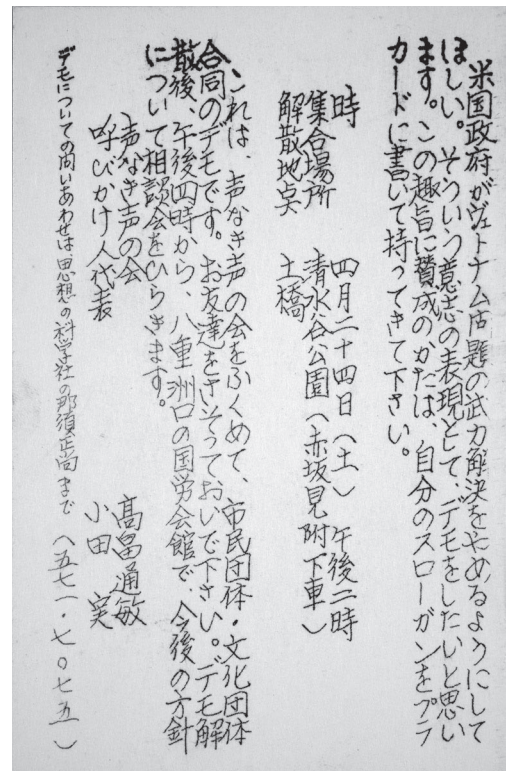 米国政府がヴェトナム问題の武力解決をやめるようにして
ほしい。そういう意志の表現として、デモをしたいと思い
ます。この趣旨に賛成のかたは、自分のスローガンをプラ
カードに書いて持ってきて下さい。
時　四月二十四日（土）午後二時
集合場所　清水谷公園（赤坂見附下車）
解散地点　土橋
これは、声なき声の会をふくめて、市民団体・文化団体
合同のデモです。お友達をさそっておいで下さい。デモ解
散後、午後四時から、八重洲口の国労会館で、今後の方針
について相談会をひらきます。
声なき声の会　高畠通敏
呼びかけ人代表　小田　実
デモについての問いあわせは思想の科学社の那須正尚まで（五七一・七〇七五）